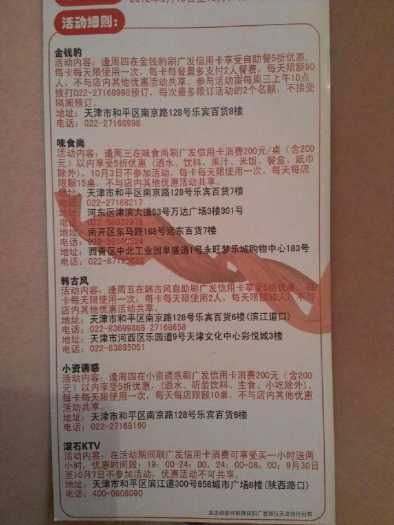 活动细则:
金钱豹
活动内容: 逢周四在金钱豹刷广发信用卡享受自助餐5折优惠,
每卡每天限使用一次, 每卡每餐最多支付2人餐费。每天限额90
人, 不与店内其他优惠活动共享。参与活动需每周三上午10点
预打022-27168998预订, 每次最多限订活动的2个名额, 不接受
隔周预订。
地址: 天津市和平区南京路128号乐宾百货8楼
电话: 022-27168998
味食尚
活动内容: 逢周三在味食尚刷广发信用卡消费200元/桌 (含200
元) 以内享受5折优惠 (酒水、饮料、果汁、米饭、餐盒、纸巾
除外), 10月3日不参加活动, 每卡每天限使用一次, 每天每店
限额15桌, 不与店内其他优惠活动共享。
地址: 天津市和平区南京路128号乐宾百货7楼
电话: 022-27168217
地址: 河东区津滨大道53号万达广场3楼301号
地址: 南开区东马路168号远东百货7楼
地址: 西青区中北工业园阜盛道1号永旺梦乐城购物中心183号
韩古风
活动内容: 逢周五在韩古风自助刷广发信用卡享受5折优惠, 每
卡每天限使用一次, 每卡每天限使用2人, 每天限额30人, 不与
店内其他优惠活动共享。
地址: 天津市和平区南京路128号乐宾百货6楼(滨江道口)
电话: 022-83699888 27168658
地址: 天津市河西区乐园道9号天津文化中心彩悦城3楼
电话: 022-83885051
小资诱惑
活动内容: 逢周四在小资诱惑刷广发信用卡消费200元 (含200
元) 以内享受5折优惠, (酒水、听装饮料、主食、小吃除外),
每卡每天限使用一次, 每天每店限额10桌, 不与店内其他优惠
活动共享。
地址: 天津市和平区南京路128号乐宾百货6楼
电话: 022-27168190
滚石KTV
活动内容: 在活动期间刷广发信用卡消费可享受买一小时送两
小时, 优惠时间段: 19:00-24:00、24:00-06:00, 9月30日
至10月7日不参加活动。活动优惠不可与其他优惠共享。
地址: 天津市和平区滨江道300号858城市广场8楼(陕西路口)
电话: 400-0606090